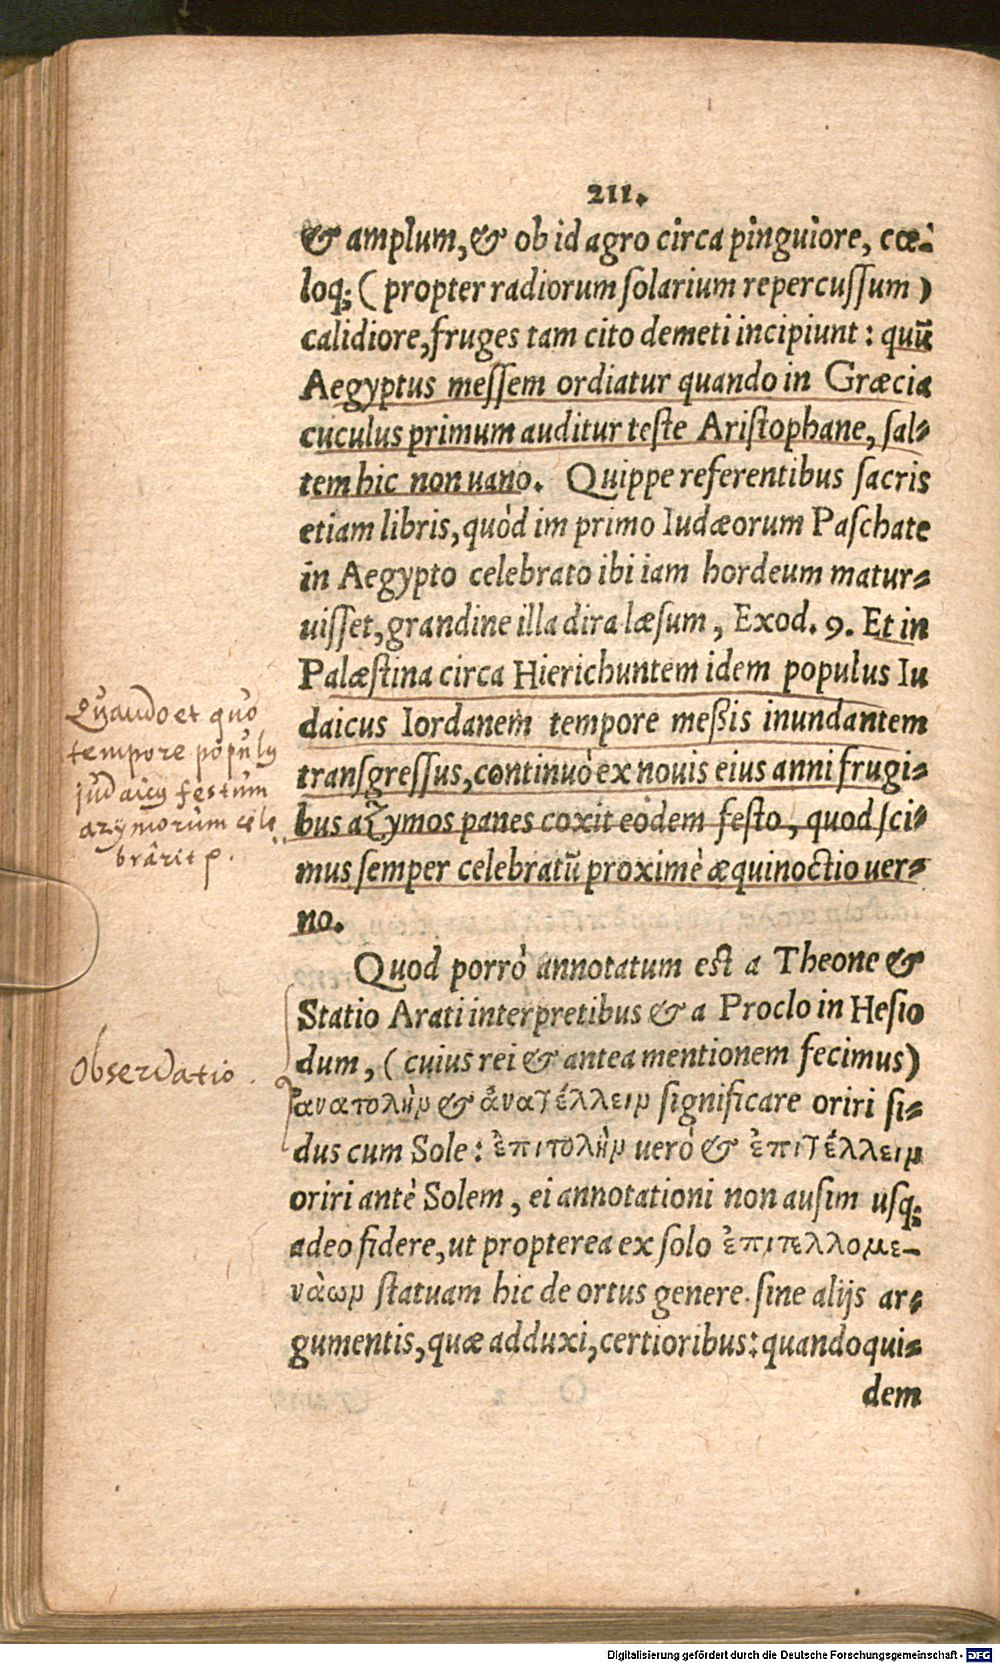 211.
& amplum, & ob id agro circa pinguiore, cœ-
loq; ( propter radiorum ſolarium repercuſſum )
calidiore, fruges tam cito demeti incipiunt : quũ
Aegyptus meſſem ordiatur quando in Græcia
cuculus primum auditur teſte Ariſtophane, ſal-
tem hic non uano. Quippe referentibus ſacris
etiam libris, quòd im primo Iudæorum Paſchate
in Aegypto celebrato ibi iam hordeum matur-
uiſſet, grandine illa dira læſum, Exod. 9. Et in
Palæſtina circa Hierichuntem idem populus Iu
daicus Iordanem tempore meßis inundantem
tranſgreſſus, continuò ex nouis eius anni frugi-
bus azymos panes coxit eodem feſto, quod ſci-
mus ſemper celebratũ proximè æquinoctio uer-
no.
Quando et quo
tempore populus
judaicus festum
azymorum cele
brârit
Quod porrò annotatum eſt a Theone &
Statio Arati interpretibus & a Proclo in Heſio
dum, ( cuius rei & antea mentionem fecimus)
ἀνατολὴν & ἀνατέλλειν ſignificare oriri ſi-
dus cum Sole: ἐπιτολὴν uerò & ἐπιτέλλειν
oriri antè Solem, ei annotationi non auſim uſq;
adeo fidere, ut propterea ex ſolo ἐπιτελλομε-
νάων ſtatuam hic de ortus genere ſine alijs ar-
gumentis, quæ adduxi, certioribus: quandoqui-
dem
Observatio .
Digitalisierung gefördert durch die Deutsche Forschungsgemeinschaft - DFG